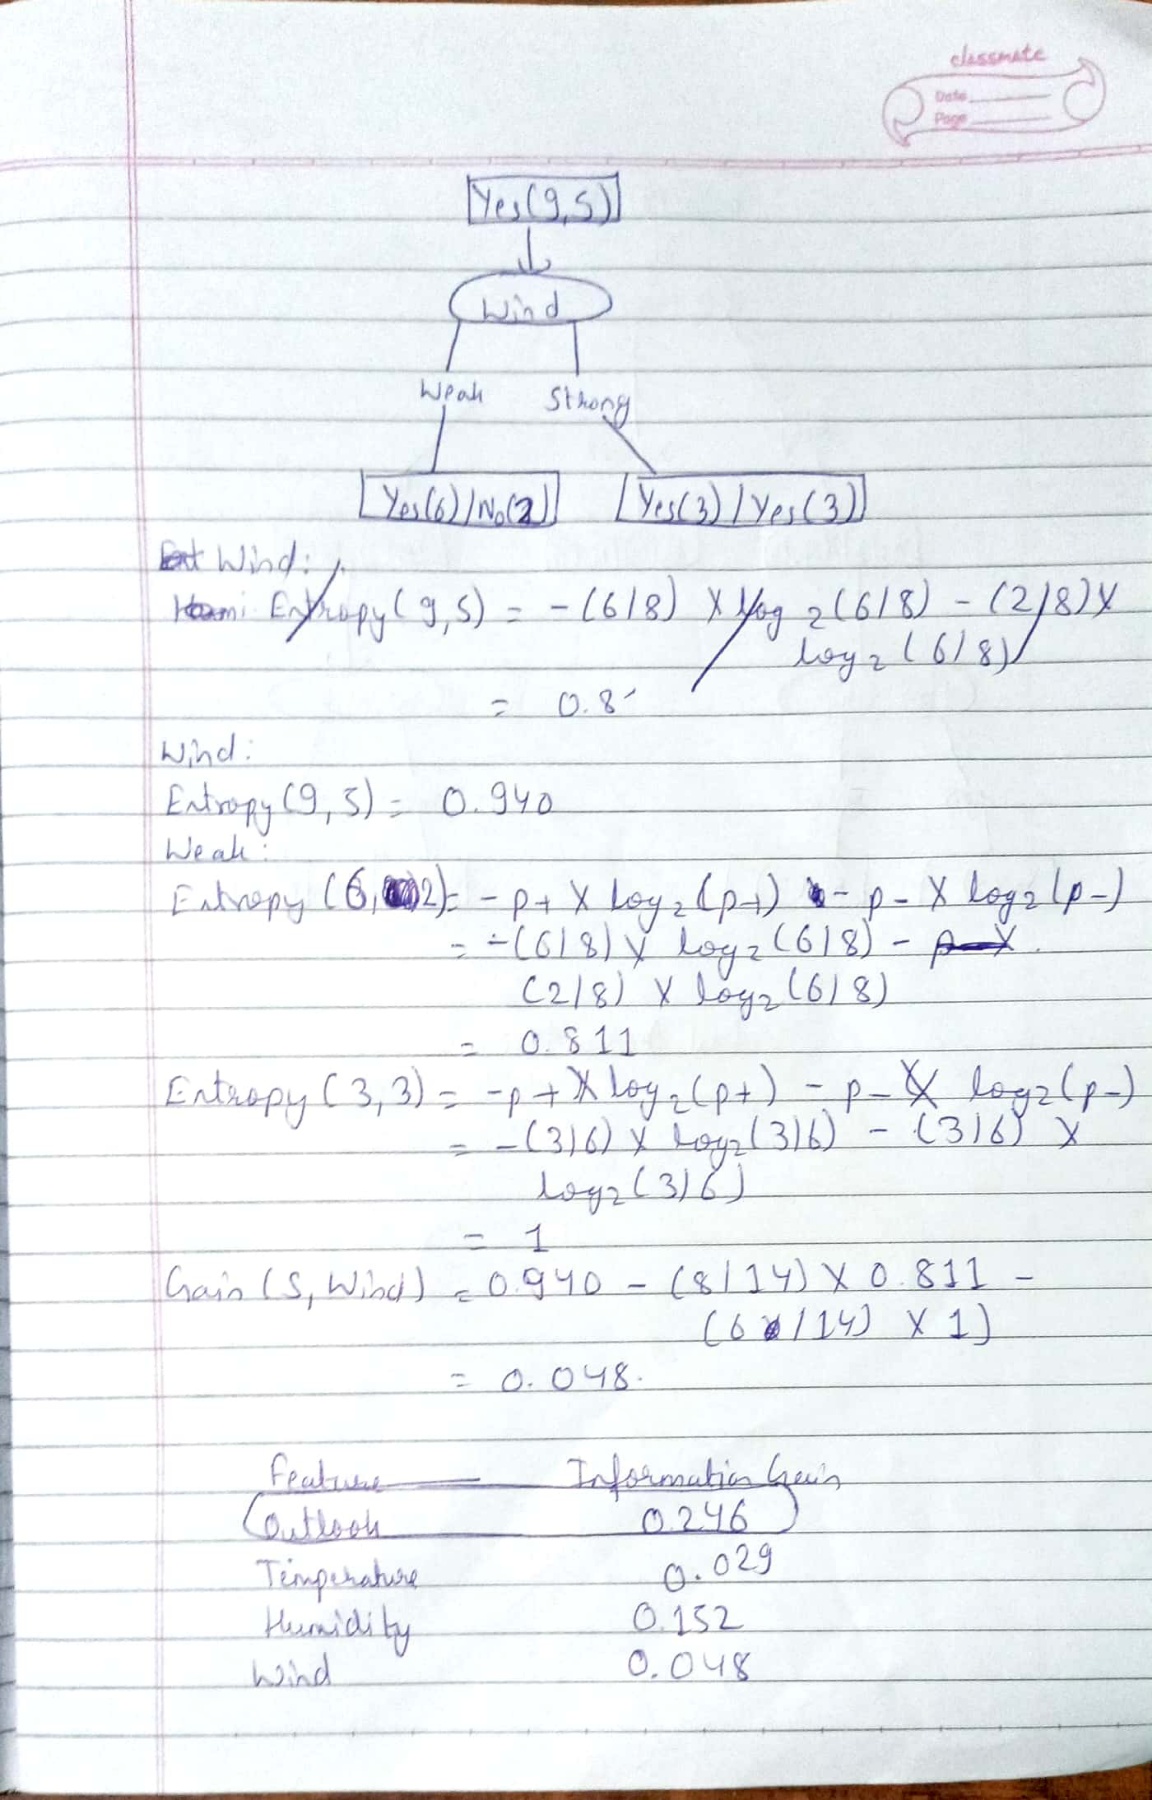 classmate
Date
Page
Yes(9,5)
Wind
Weak Strong
Yes(6)/No(2) Yes(3)/Yes(3)
Wind:
Entropy(9,5) = -(6/8) X log2(6/8) - (2/8)X
log2(6/8)
= 0.8
Wind:
Entropy(9,5) = 0.940
Weak:
Entropy(6,2) = -p+ X log2(p+) - p- X log2(p-)
= -(6/8) X log2(6/8) - p- X
(2/8) X log2(6/8)
= 0.811
Entropy(3,3) = -p+ X log2(p+) - p- X log2(p-)
= -(3/6) X log2(3/6) - (3/6) X
log2(3/6)
= 1
Gain(S,Wind) = 0.940 - (8/14) X 0.811 -
(6/14) X 1)
= 0.048.
Feature Information Gain
Outlook 0.246
Temperature 0.029
Humidity 0.152
Wind 0.048